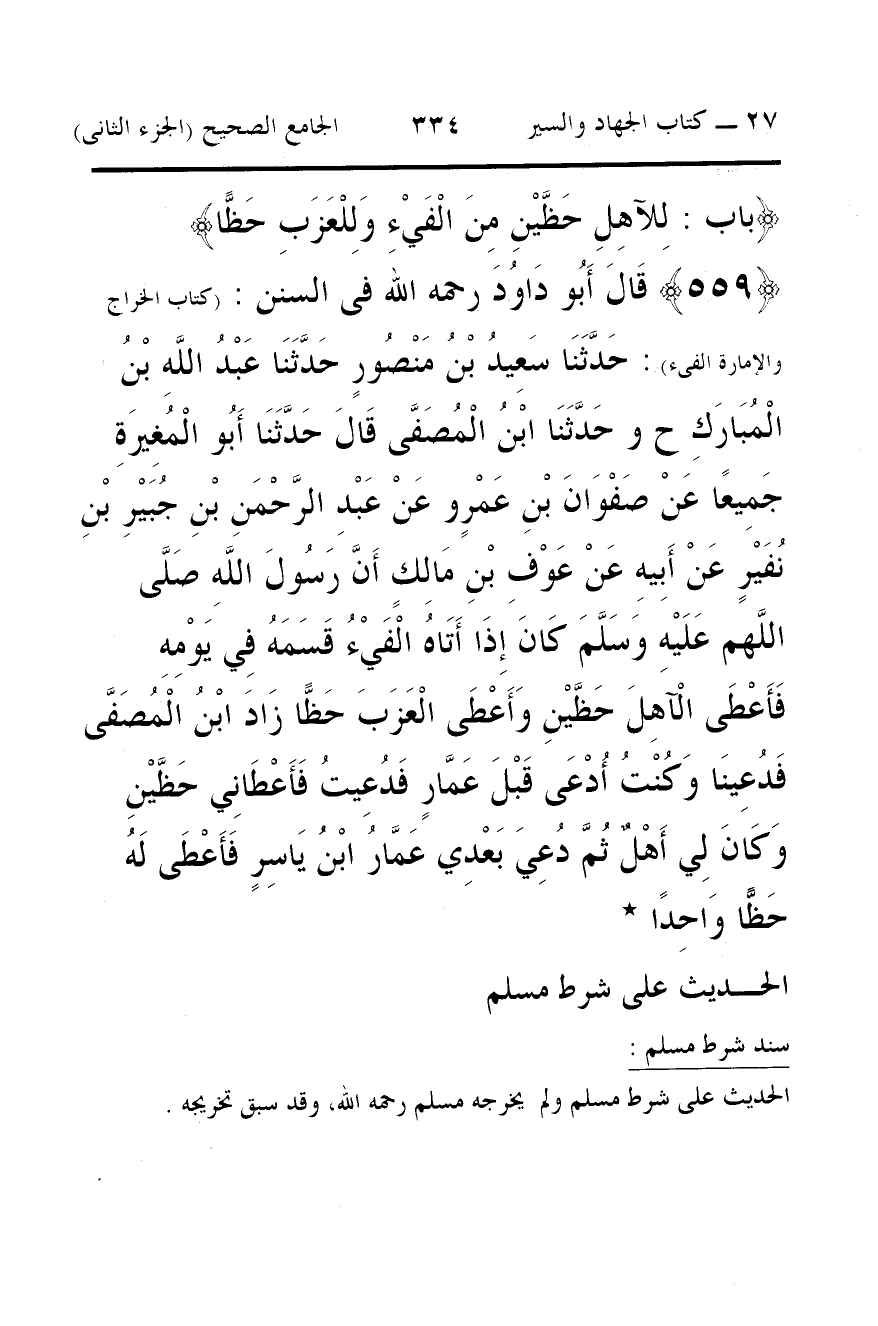 ٢٧ ــ كتاب الجهاد والسير ٣٣٤ الجامع الصحيح (الجزء الثانى)
﴿باب : لِلآهِلِ حَظَّيْنِ مِنَ الْفَيْءِ وَلِلْعَزَبِ حَظًّا﴾
﴿٥٥٩﴾ قَالَ أَبُو دَاوُدَ رحمه الله فى السنن : (كتاب الخراج
والإمارة الفىء) : حَدَّثَنَا سَعِيدُ بْنُ مَنْصُورٍ حَدَّثَنَا عَبْدُ اللَّهِ بْنُ
الْمُبَارَكِ ح و حَدَّثَنَا ابْنُ الْمُصَفَّى قَالَ حَدَّثَنَا أَبُو الْمُغِيرَةِ
جَمِيعًا عَنْ صَفْوَانَ بْنِ عَمْرٍو عَنْ عَبْدِ الرَّحْمَنِ بْنِ جُبَيْرِ بْنِ
نُفَيْرٍ عَنْ أَبِيهِ عَنْ عَوْفِ بْنِ مَالِكٍ أَنَّ رَسُولَ اللَّهِ صَلَّى
اللَّهم عَلَيْهِ وَسَلَّمَ كَانَ إِذَا أَتَاهُ الْفَيْءُ قَسَمَهُ فِي يَوْمِهِ
فَأَعْطَى الْآهِلَ حَظَّيْنِ وَأَعْطَى الْعَزَبَ حَظًّا زَادَ ابْنُ الْمُصَفَّى
فَدُعِينَا وَكُنْتُ أُدْعَى قَبْلَ عَمَّارٍ فَدُعِيتُ فَأَعْطَانِي حَظَّيْنِ
وَكَانَ لِي أَهْلٌ ثُمَّ دُعِيَ بَعْدِي عَمَّارُ ابْنُ يَاسِرٍ فَأَعْطَى لَهُ
حَظًّا وَاحِدًا *
الحـــديث على شرط مسلم
سند شرط مسلم :
الحديث على شرط مسلم ولم يخرجه مسلم رحمه الله، وقد سبق تخريجه .